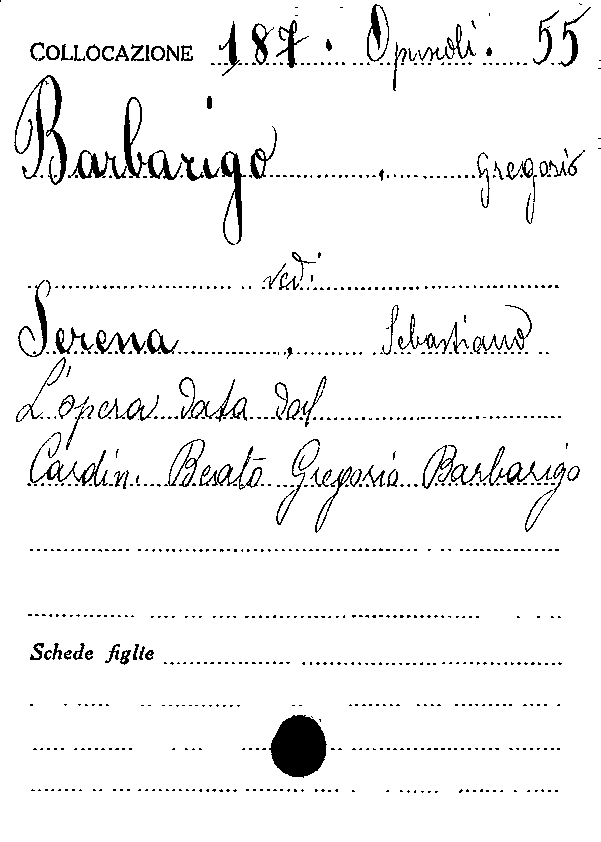 COLLOCAZIONE 187. Opuscoli. 55
Barbarigo, Gregorio
vedi
Serena, Sebastiano
L'opera data dal
Cardin. Beato Gregorio Barbarigo
Schede figlie